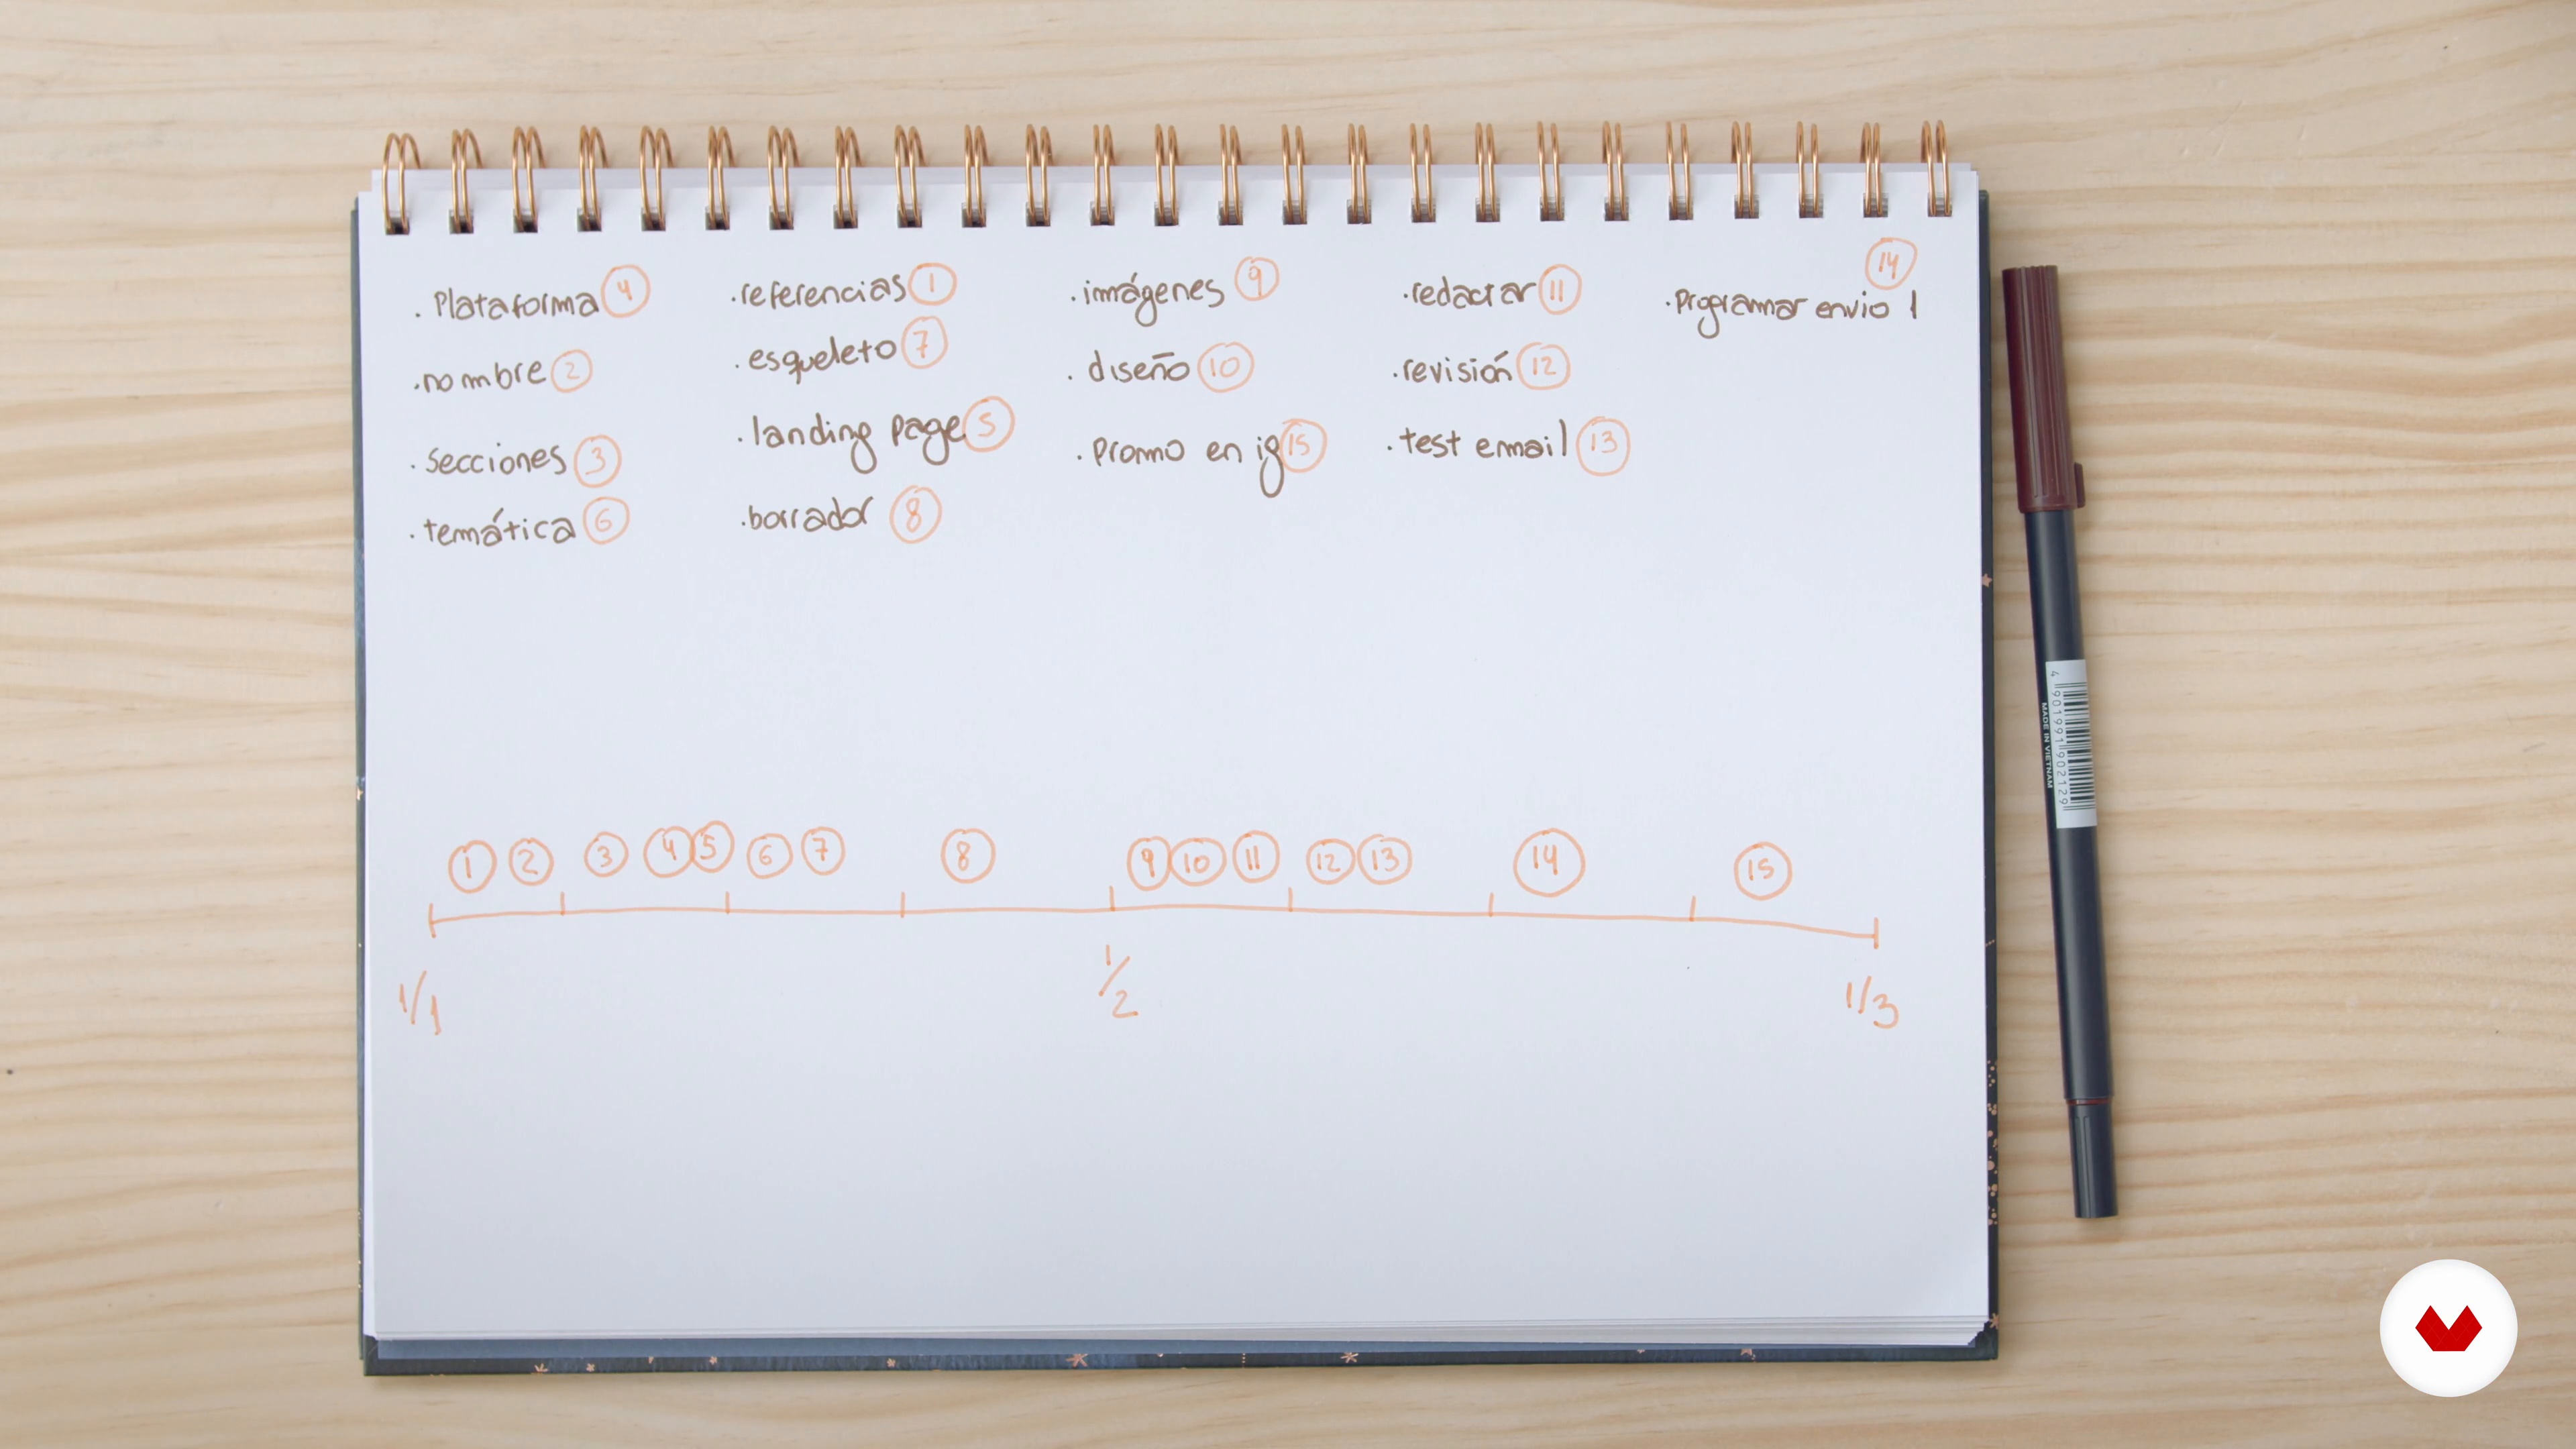 . Plataforma 4
. nombre 2
. secciones 3
. temática 6
. referencias 1
. esqueleto 7
. landing page 5
. borrador 8
. imágenes 9
. diseño 10
. promo en ig 15
. redactar 11
. revisión 12
. test email 13
14
. Programar envio 1
1 2 3 4 5 6 7 8 9 10 11 12 13 14 15
1/1 1/2 1/3
4 901991 902129
MADE IN VIETNAM